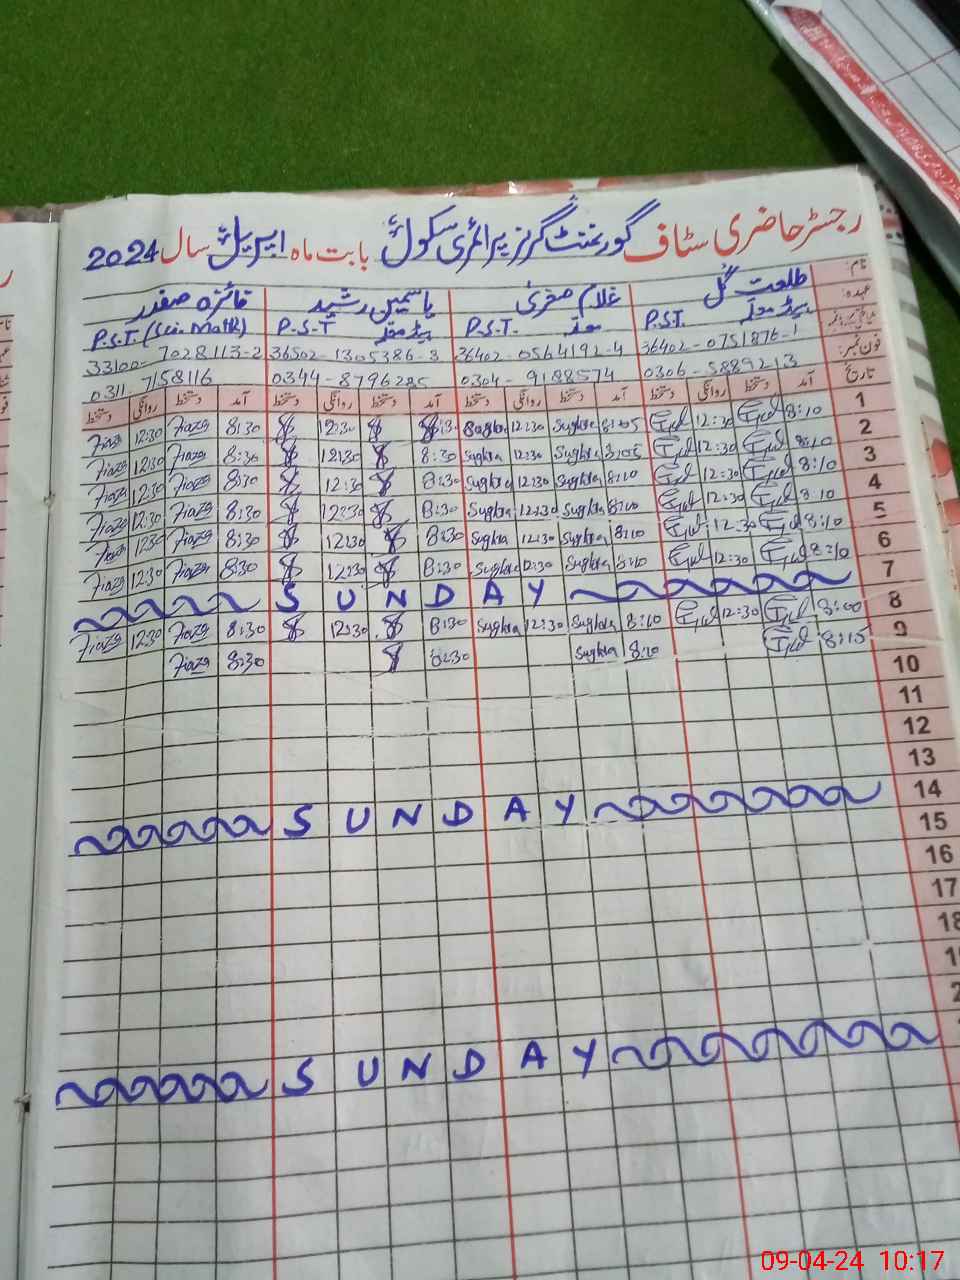 رجسٹر حاضری سٹاف گورنمنٹ گرلز پرائمری سکول بابت ماہ اپریل سال 2024
نام: طلعت گل غلام صغریٰ یاسمین رشید فائزہ صفدر
عہدہ: ہیڈ معلمہ P.S.T. معلمہ P.S.T. P.S.T P.S.T (Sci. Math)
36402-0751876-1 36402-0564192-4 36502-1305386-3 33100-7028113-2
فون نمبر: 0306-5889213 0304-9188574 0344-8796285 0311-7158116
تاریخ آمد دستخط روانگی دستخط آمد دستخط روانگی دستخط آمد دستخط روانگی دستخط آمد دستخط روانگی دستخط
1 8:10 Gul 12:30 Gul 8:05 Sughra 12:30 Sughra 8:30 12:30 8:30 Fiaza 12:30 Fiaza
2 8:10 Gul 12:30 Gul 8:05 Sughra 12:30 Sughra 8:30 12:30 8:30 Fiaza 12:30 Fiaza
3 8:10 Gul 12:30 Gul 8:10 Sughra 12:30 Sughra 8:30 12:30 8:30 Fiaza 12:30 Fiaza
4 8:10 Gul 12:30 Gul 8:10 Sughra 12:30 Sughra 8:30 12:30 8:30 Fiaza 12:30 Fiaza
5 8:10 Gul 12:30 Gul 8:10 Sughra 12:30 Sughra 8:30 12:30 8:30 Fiaza 12:30 Fiaza
6 8:10 Gul 12:30 Gul 8:10 Sughra 12:30 Sughra 8:30 12:30 8:30 Fiaza 12:30 Fiaza
7 SUNDAY
8 8:00 Gul 12:30 Gul 8:10 Sughra 12:30 Sughra 8:30 12:30 8:30 Fiaza 12:30 Fiaza
9 8:15 Gul 8:10 Sughra 8:30 8:30 Fiaza
10
11
12
13
14 SUNDAY
15
16
17
18
SUNDAY
09-04-24 10:17